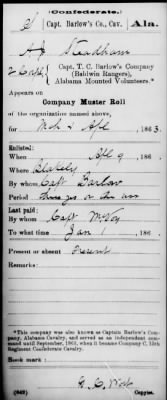 (Confederate.)
S Capt. Barlow's Co., Cav. Ala.
A J Steadham
2 Corpl, Capt. T. C. Barlow's Company
(Baldwin Rangers),
Alabama Mounted Volunteers.*
Appears on
Company Muster Roll
of the organization named above,
for Mch & Apl, 1863.
Enlisted:
When Apl 9, 186 .
Where Blakely
By whom Capt Barlow
Period three yrs or the war
Last paid:
By whom Capt McVoy
To what time Jan 1, 186 .
Present or absent Present
Remarks:
*This company was also known as Captain Barlow's Com-
pany, Alabama Cavalry, and served as an independent com-
mand until September, 1863, when it became Company C, 15th
Regiment Confederate Cavalry.
Book mark:
(642) Copyist.